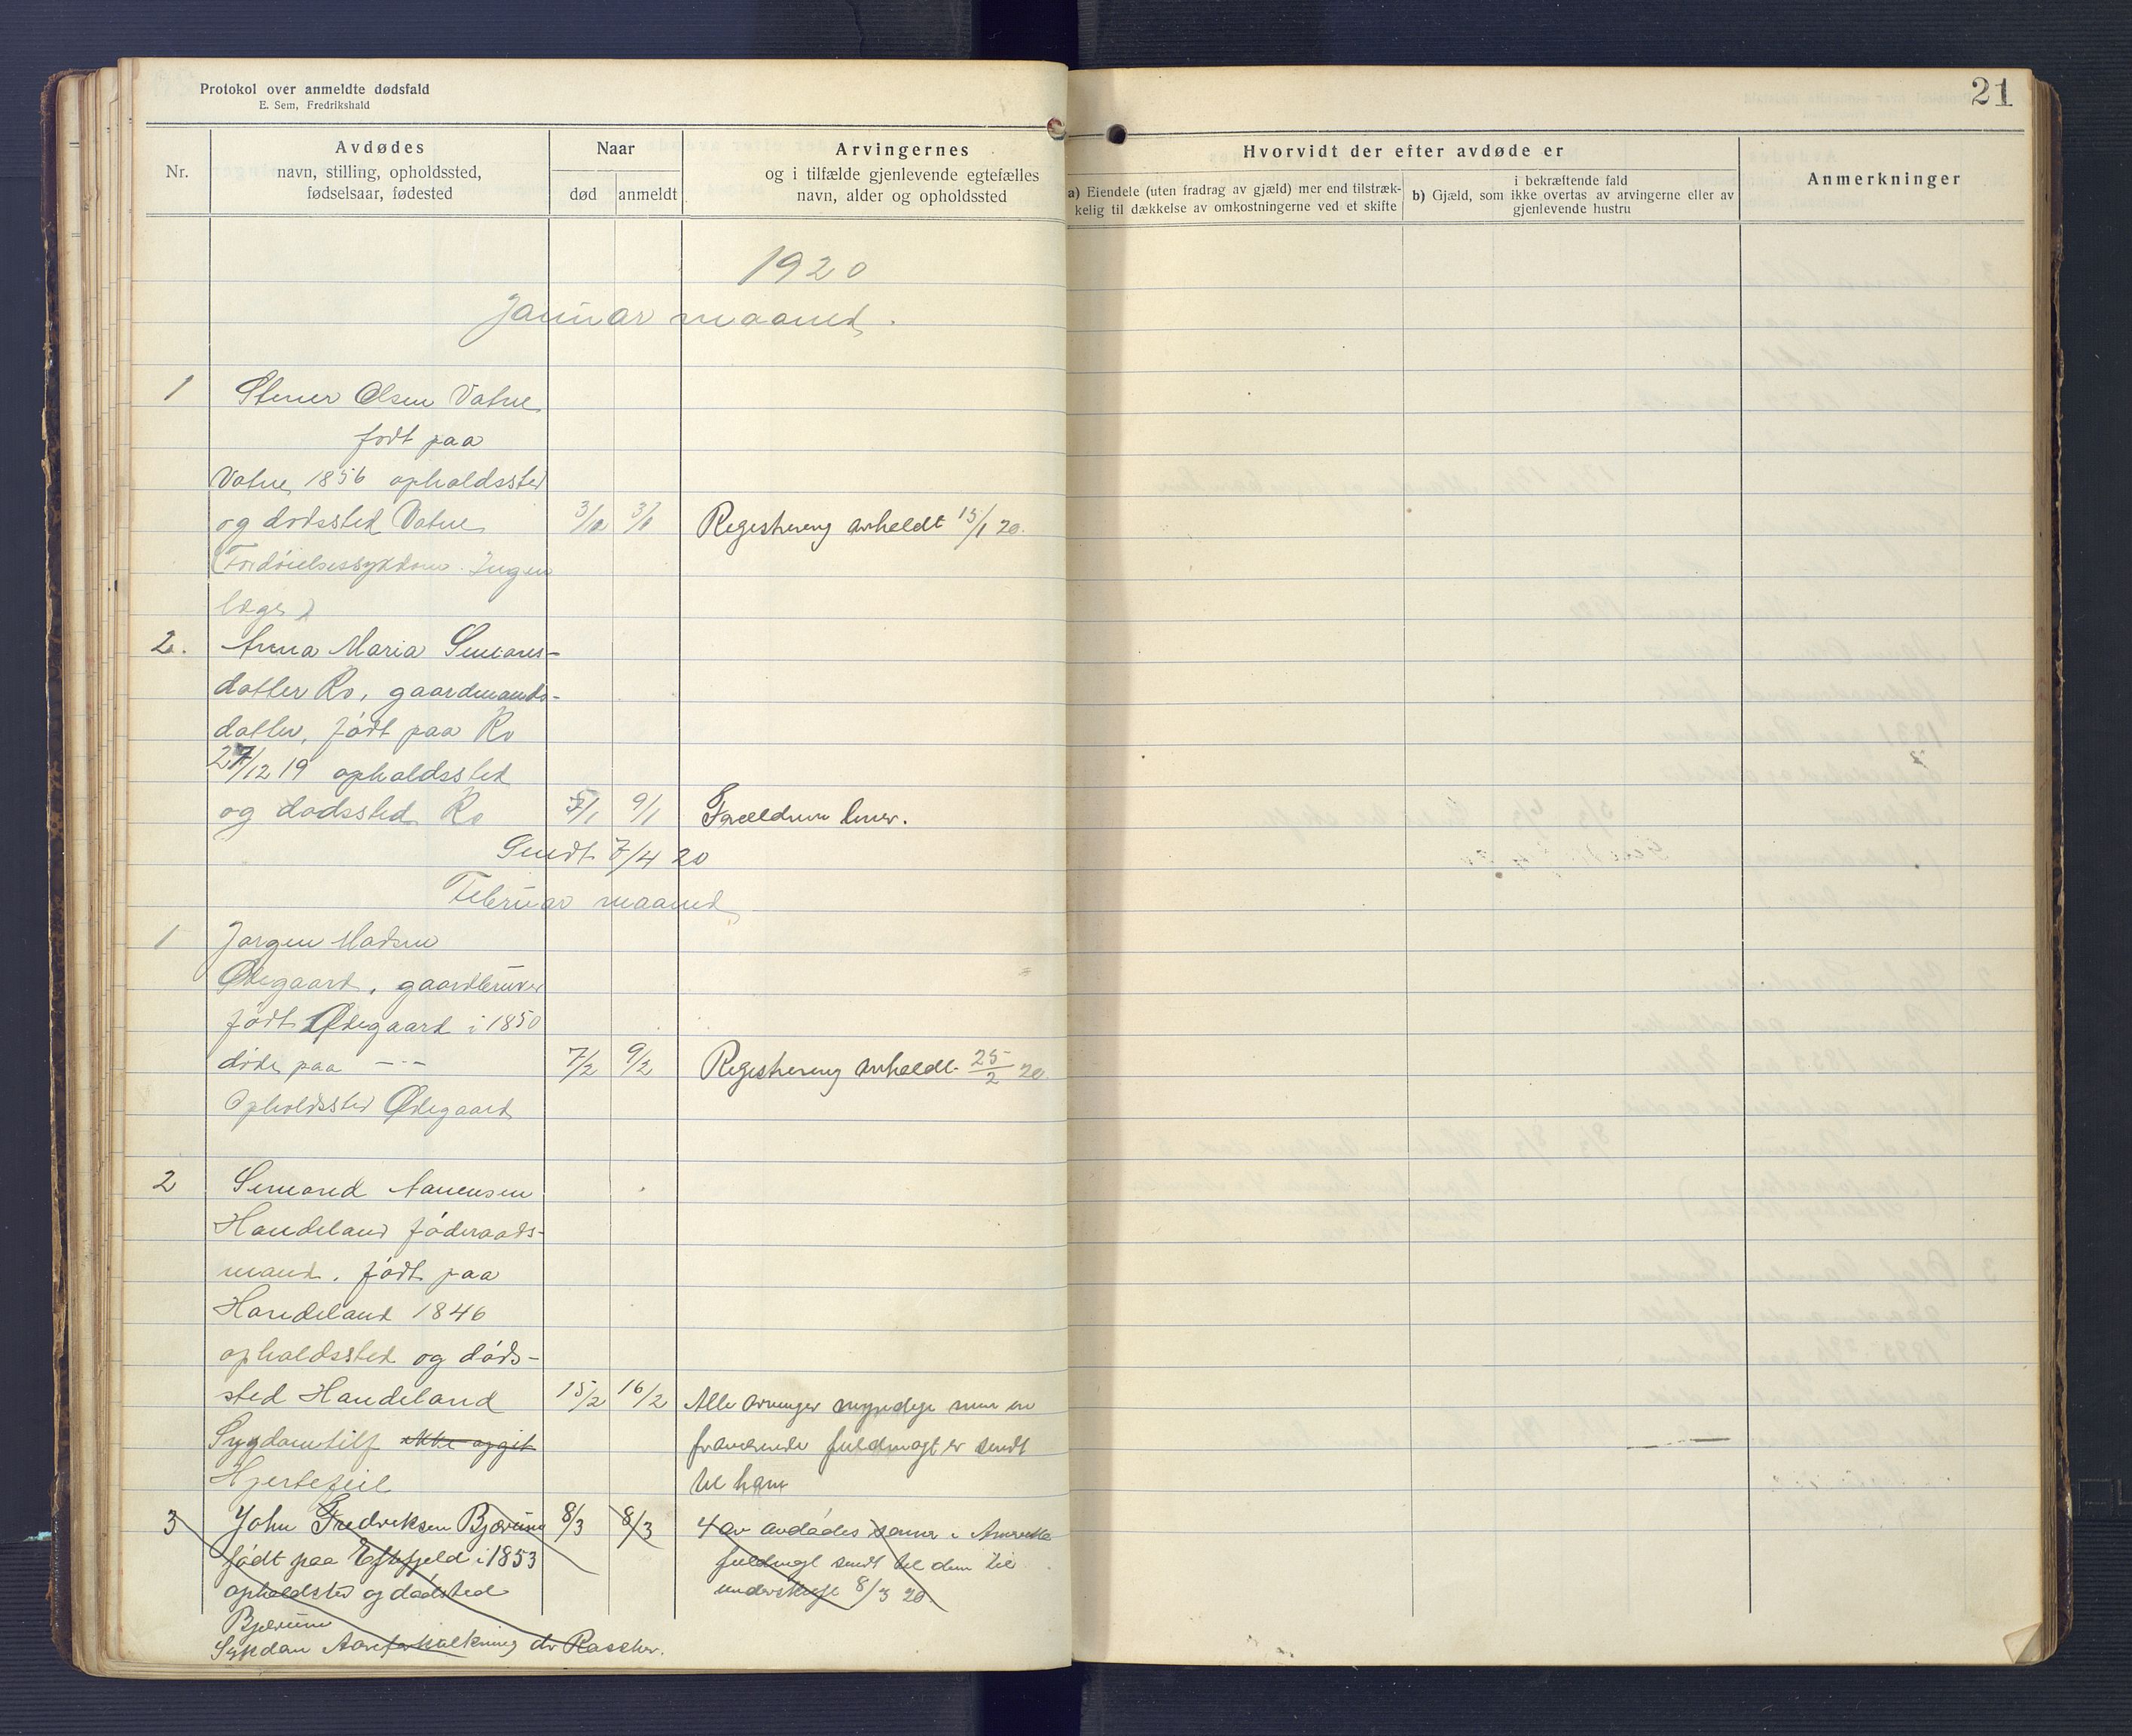 Protokol over anmeldte dødsfald
E. Sem, Fredrikshald
21
Nr.
Avdødes
navn, stilling, opholdssted,
fødselsaar, fødested
Naar
død
anmeldt
Arvingernes
og i tilfælde gjenlevende egtefælles
navn, alder og opholdssted
Hvorvidt der efter avdøde er
a) Eiendele (uten fradrag av gjæld) mer end tilstræk-
kelig til dækkelse av omkostningerne ved et skifte
i bekræftende fald
b) Gjæld, som ikke overtas av arvingerne eller av
gjenlevende hustru
Anmerkninger
1920
Januar maaned.
1 Stener Olsen Vatne
født paa
Vatne 1856 opholdssted
og dødssted Vatne 3/1 Registrering avholdt 15/1 20.
(Fordøielsessygdom. Ingen
læge)
2. Anna Maria
datter Ro, gaardmands-
datter, født paa Ro
27/12 19 opholdssted
og dødssted Ro 5/1 9/1 Forældrene lever.
Sendt 7/4 20
Februar maaned
1 Jørgen Madsen
Ødegaard, gaardbruker
født Ødegaard i 1850
døde paa -"- 7/2 9/2 Registrering avholdt 25/2 20
Opholdssted Ødegaard
2 Simond Aanensen
Handeland føderaads-
mand. født paa
Handeland 1846
opholdssted og døds-
sted Handeland 15/2 16/2 Alle arvinger myndige men en
Sygdomstilf ikke opgit fraværende fuldmagt er sendt
Hjertefeil til ham
3 John Fredriksen Bjørum 8/3 8/3 4 av avdødes sønner i Amerika
født paa Eftefjeld i 1853 fuldmagt sendt til dem til
opholdsted og dødsted underskrift 8/3 20.
Bjørum
Sykdom Aareforkalkning dr Rascher.